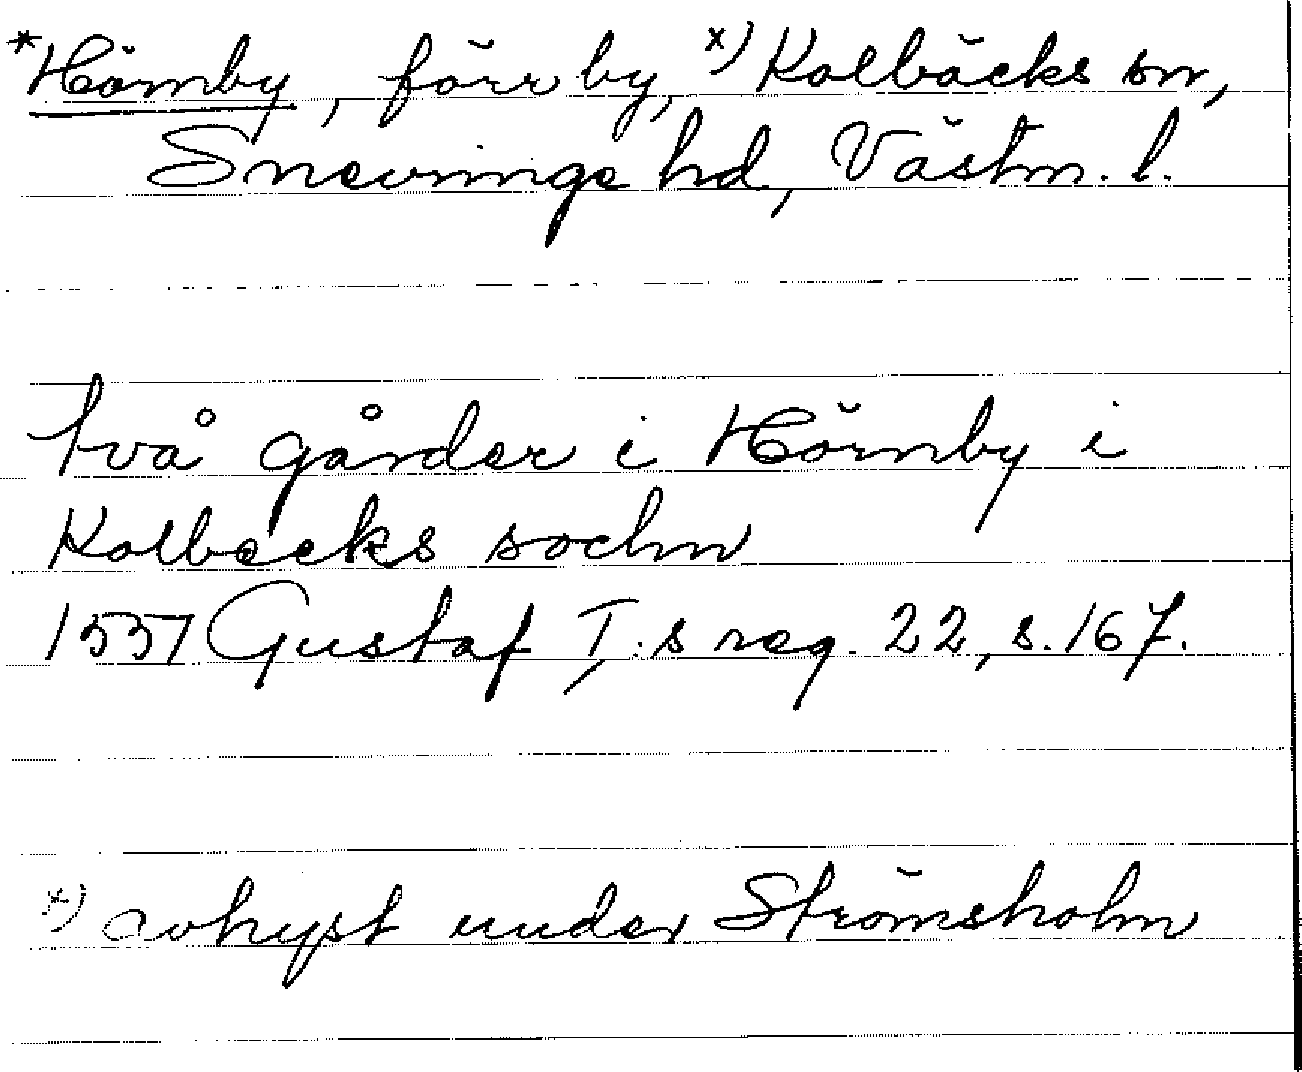 *Hörnby, förr by, x) Kolbäcks sn,
Snevringe hd, Västm. l.
två gårder i Hörnby i
Kolbecks sochn
1551 Gustaf I:s reg. 22, s. 167.
x) avhyst under Strömsholm